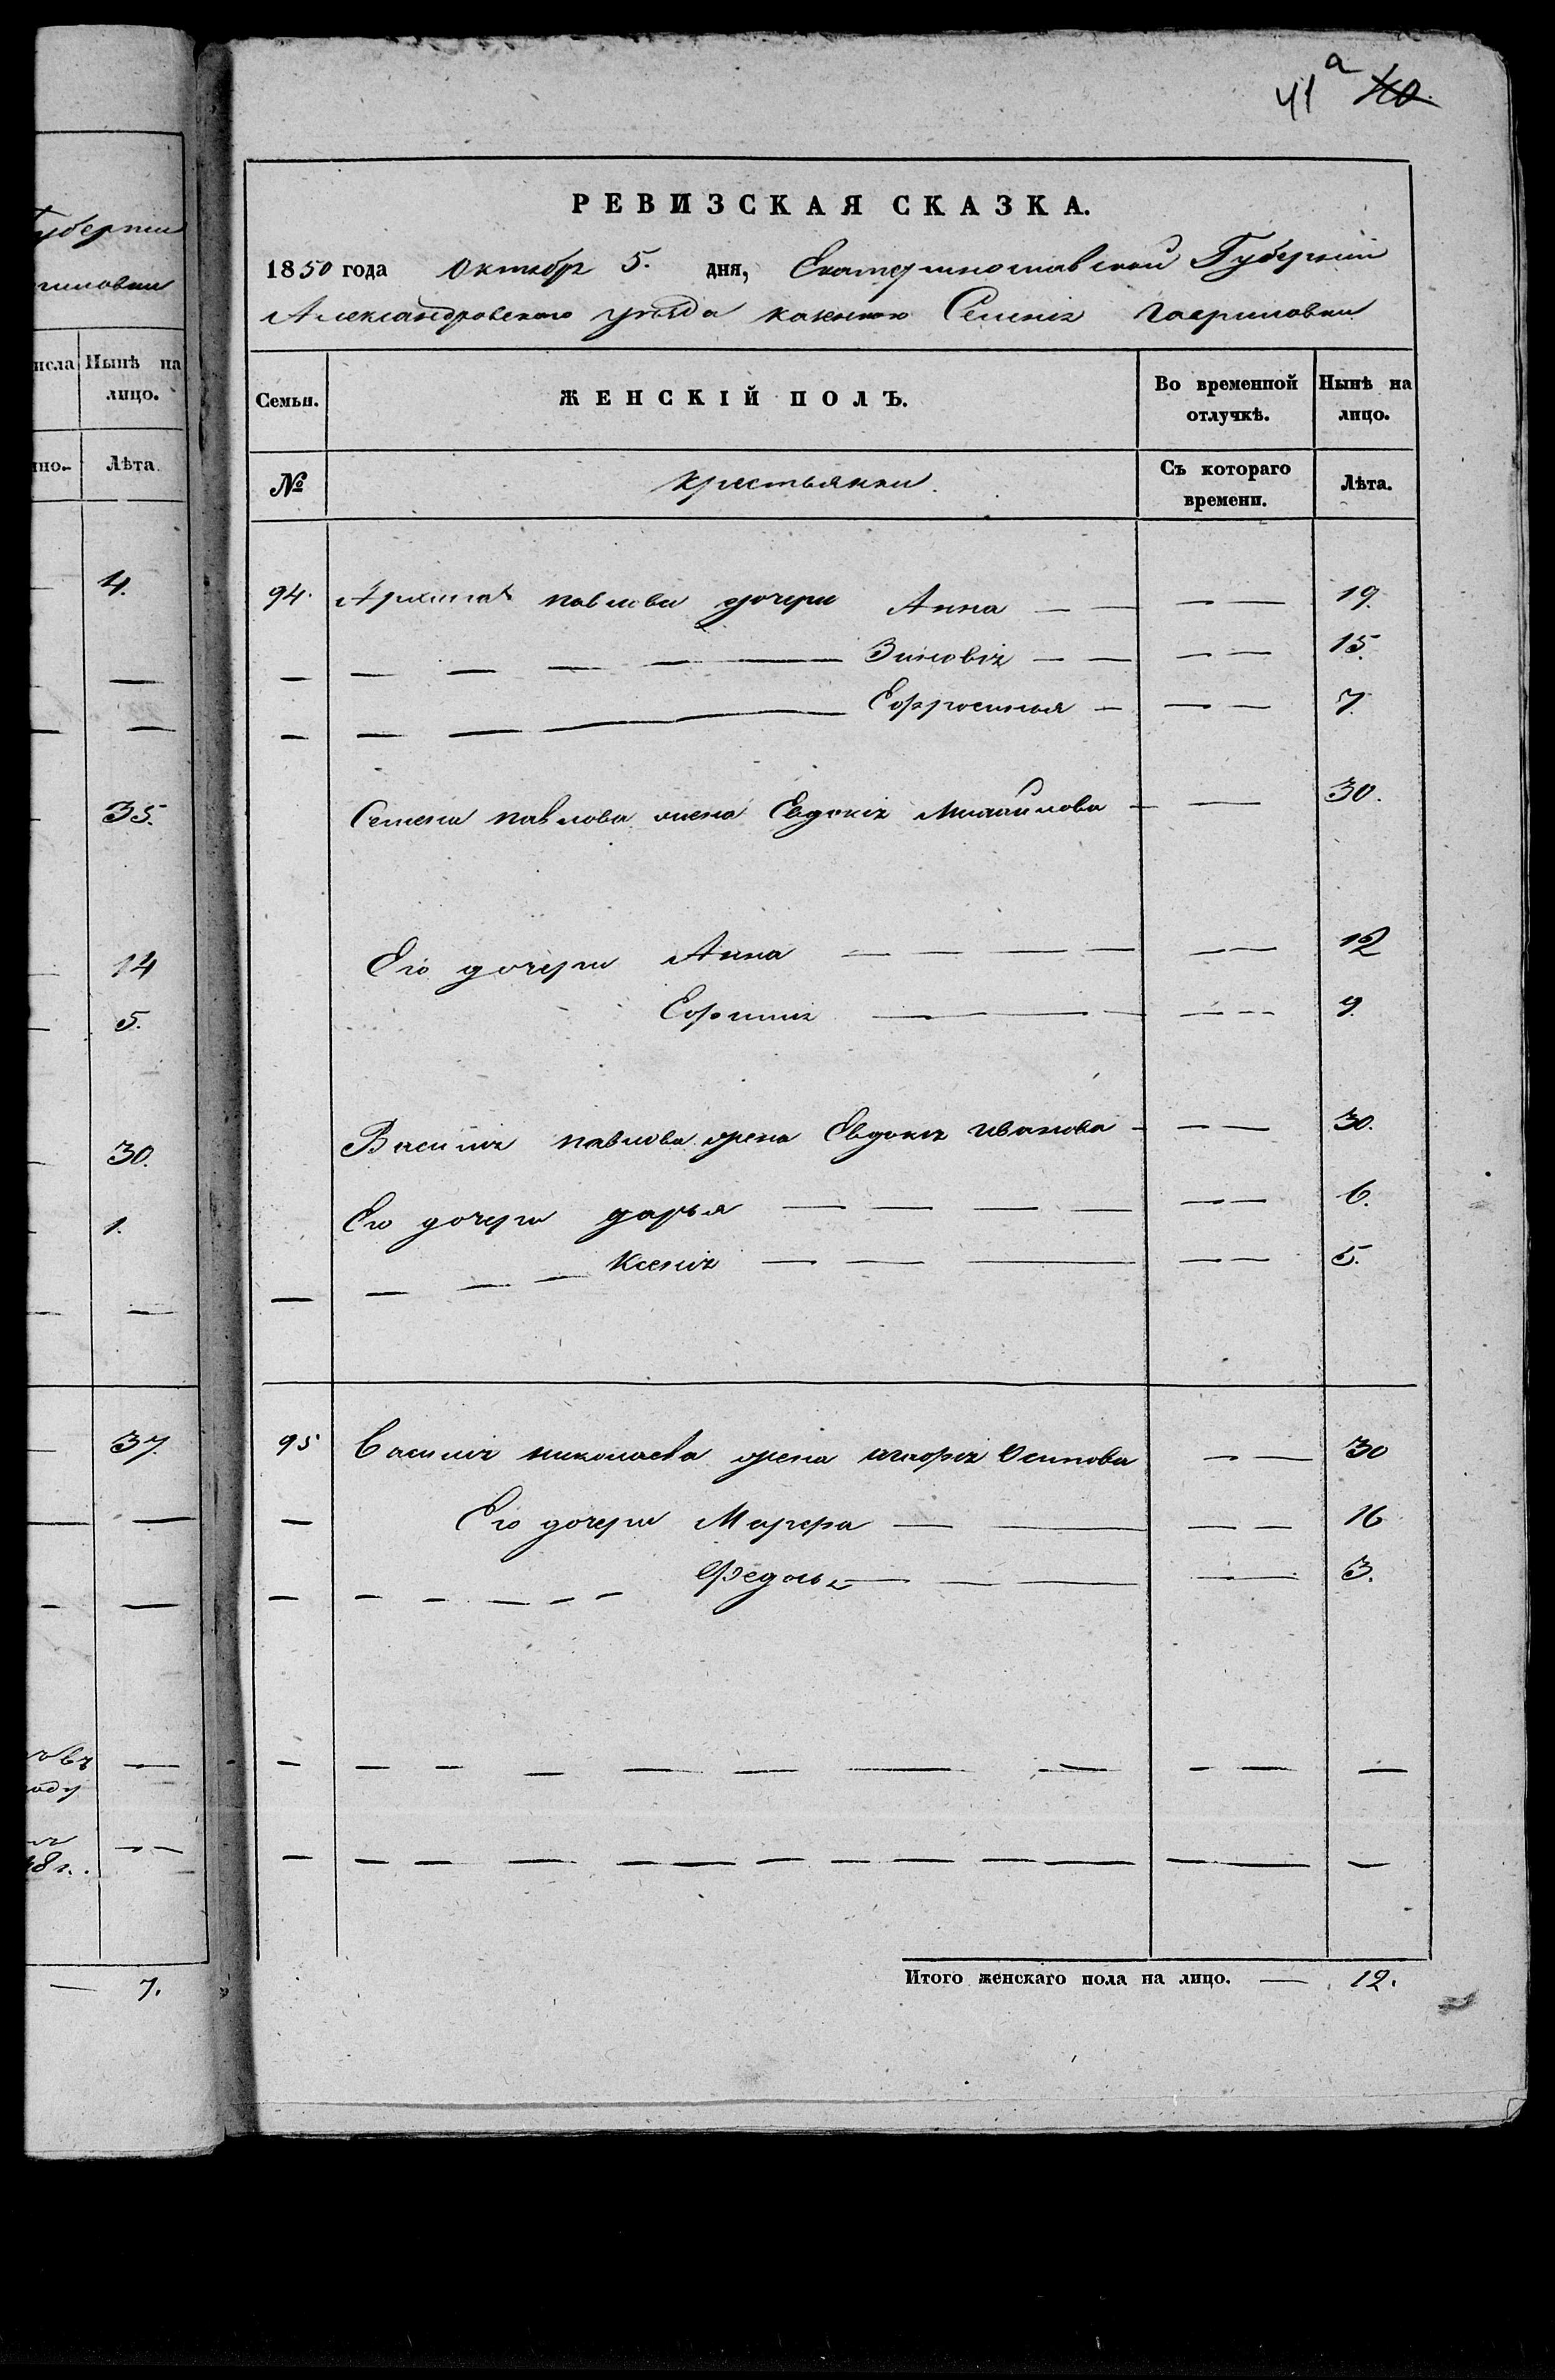 губерніи
риловки
Нынѣ на
лицо.
Лѣта.
4.
35.
14
5.
30.
1.
37.
7.
41а 40
РЕВИЗСКАЯ СКАЗКА.
1850 года Октября 5. дня, Екатеринославской Губерніи
Александровского уезда казенного Селенія Гавриловки
Семьи.
ЖЕНСКІЙ ПОЛЪ.
Во временной отлучкѣ.
Нынѣ на лицо.
№
крестьянки.
Съ котораго времени.
Лѣта.
94. павлова дочери Анна — — — — 19.
Зиновія — — — — 15.
Ефросинья — — — 7.
Семена павлова жена Евдокія Михайлова — — 30.
Его дочери Анна — — — — — — 12
Ефимия — — — — — — 9.
Василия павлова жена Евдокия иванова — — — 30.
Его дочери дарья — — — — — — 6.
Ксения — — — — — 5.
95 Василия николаева жена Осипова — — 30
Его дочери Марфа — — — — 16
Федось — — — — 3.
Итого женскаго пола на лицо. — 12.